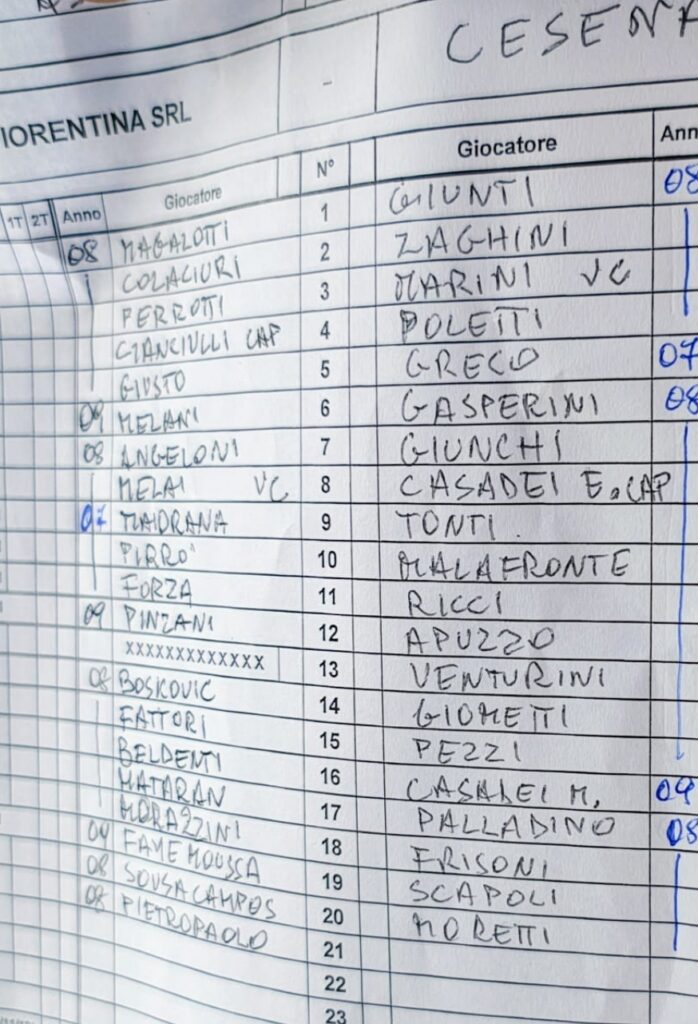 CESENA
IORENTINA SRL -
1T 2T Anno Giocatore N° Giocatore Ann
08 MAGALOTTI 1 GIUNTI 08
COLACIURI 2 ZAGHINI
PERROTTI 3 MARINI VC
CIANCIULLI CAP 4 POLETTI
GIUSTO 5 GRECO 07
09 MELANI 6 GASPERINI 08
08 ANGELONI 7 GIUNCHI
MELAI VC 8 CASADEI E. CAP
07 MAIORANA 9 TONTI
PIRRO' 10 MALAFRONTE
FORZA 11 RICCI
09 PINZANI 12 APUZZO
XXXXXXXXXXXXX 13 VENTURINI
08 BOSKOVIC 14 GIOMETTI
FATTORI 15 PEZZI
BELDENTI 16 CASADEI M. 09
MATARAN 17 PALLADINO 08
MORAZZINI 18 FRISONI
09 FAME MOUSSA 19 SCAPOLI
08 SOUSA CAMPOS 20 MORETTI
08 PIETROPAOLO 21
22
23